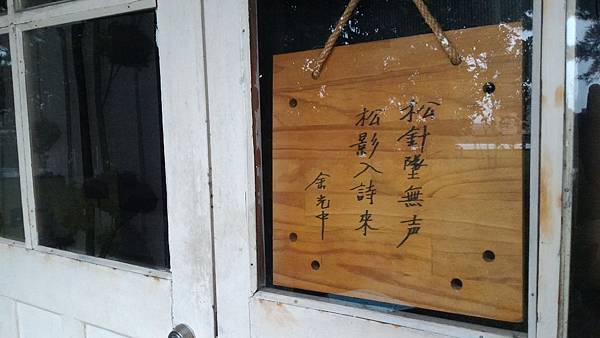 松針墜無声
松影入詩來
余光中